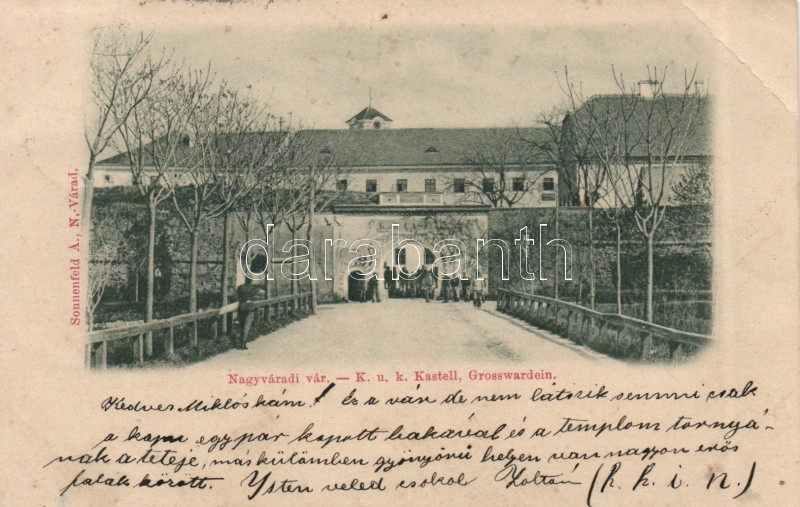 Sonnenfeld A., N.-Várad.
darabanth
Nagyváradi vár. — K. u. k. Kastell, Grosswardein.
Kedves Miklóskám! Ez a vár de nem látszik semmi csak
a kapu egy pár kopott bakával és a templom tornyá-
nak a teteje, máskülömben gyönyörü helyen van nagyon erős
falak között. Isten veled csókol Zoltán (k. k. i. n.)